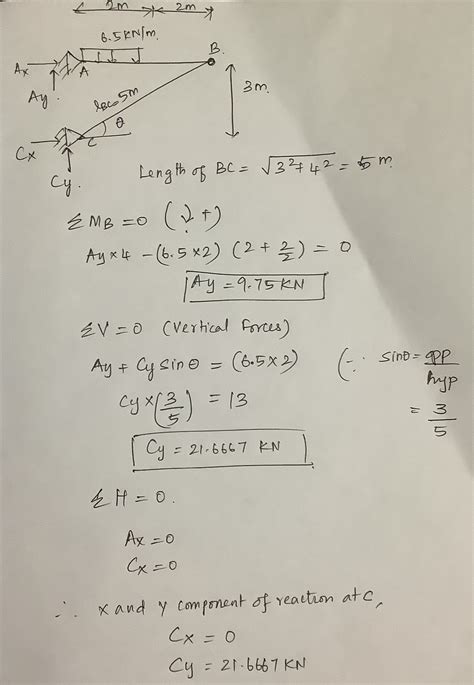 2m 2m
6.5 KN/m.
B.
Ax A
Ay.
lBC=5m
3m.
θ
Cx C
Cy.
Length of BC = √3²+4² = 5 m.
ΣMB = 0 (↓+)
Ay×4 - (6.5×2) (2 + 2/2) = 0
Ay = 9.75 KN
ΣV = 0 (Vertical Forces)
Ay + Cy sinθ = (6.5×2) (∵ sinθ = opp/hyp
Cy×(3/5) = 13 = 3/5
Cy = 21.6667 KN
ΣH = 0.
Ax = 0
Cx = 0
∴ x and y component of reaction at C,
Cx = 0
Cy = 21.6667 KN